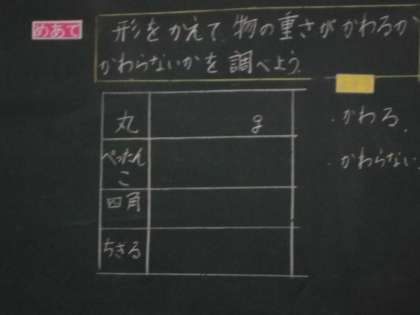 めあて
形をかえて、物の重さがかわるか
かわらないかを調べよう。
丸 g
ぺったん
こ
四角
ちぎる
・かわる
・かわらない